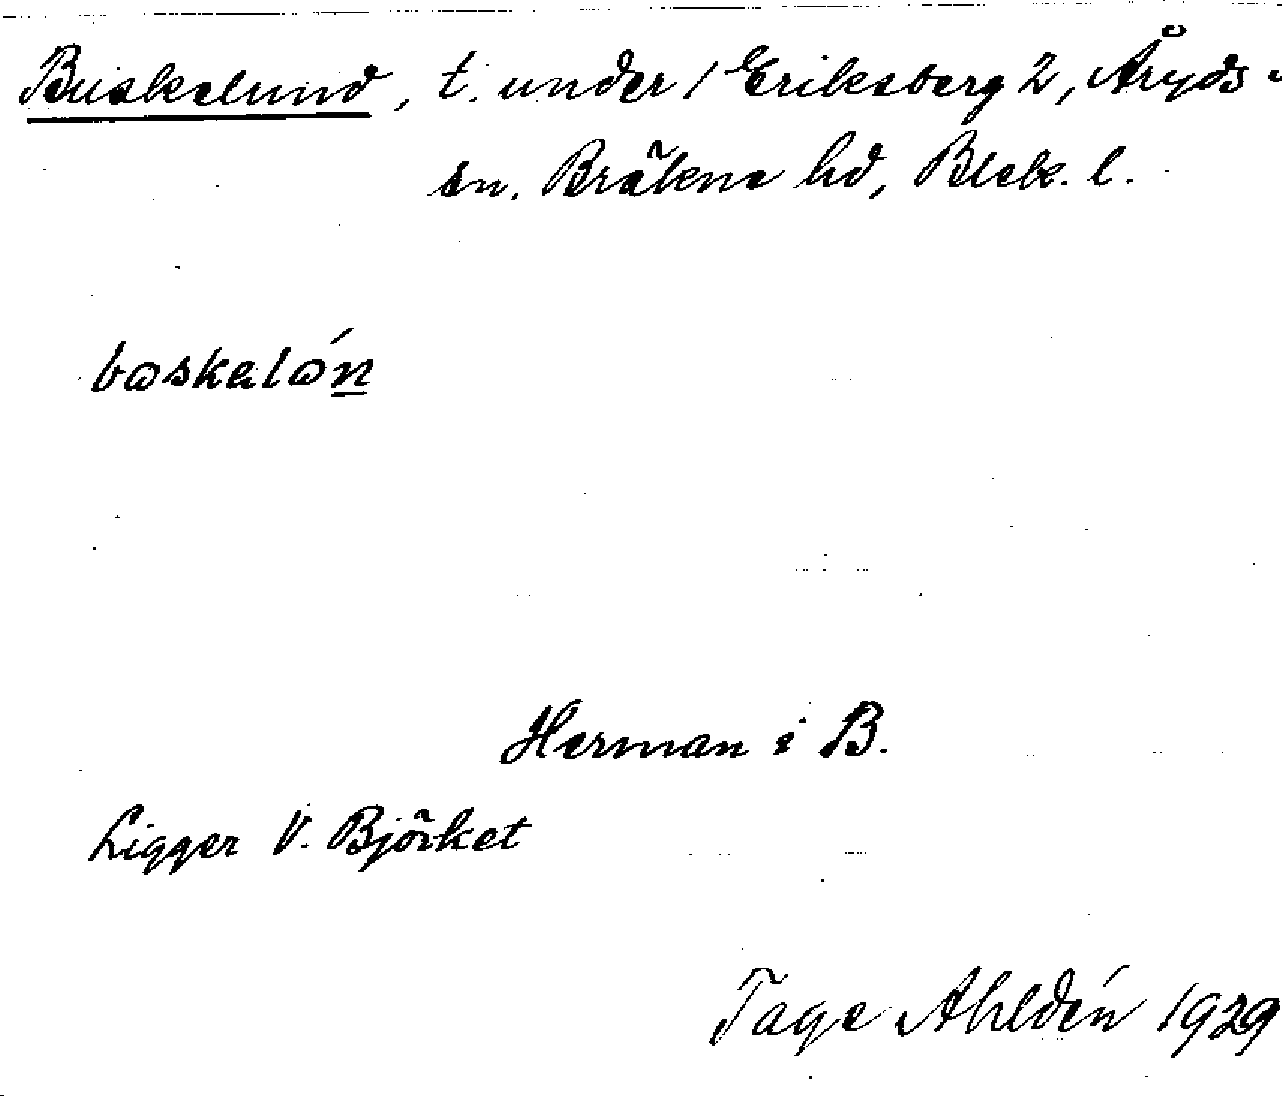 Buskelund, t. under 1 Eriksberg 2, Åryds
sn. Bräkne hd, Blek. l.
bɷskalɷ́n
Herman i B.
Ligger V. Björket
Tage Ahldén 1929